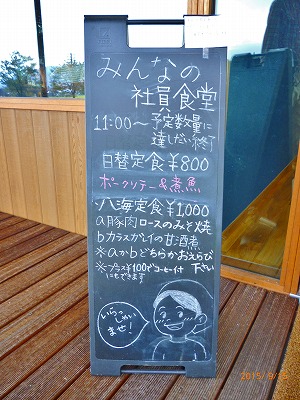 みんなの
社員食堂
11:00〜予定数量に
達しだい終了
日替定食¥800
ポークソテー&煮魚
八海定食¥1,000
a豚肉ロースのみそ焼
bカラスガレイの甘酒煮
※aかbどちらかおえらび
下さい
※プラス¥100でコーヒー付
にもできます
いらっしゃい
ませ!
2015/9/